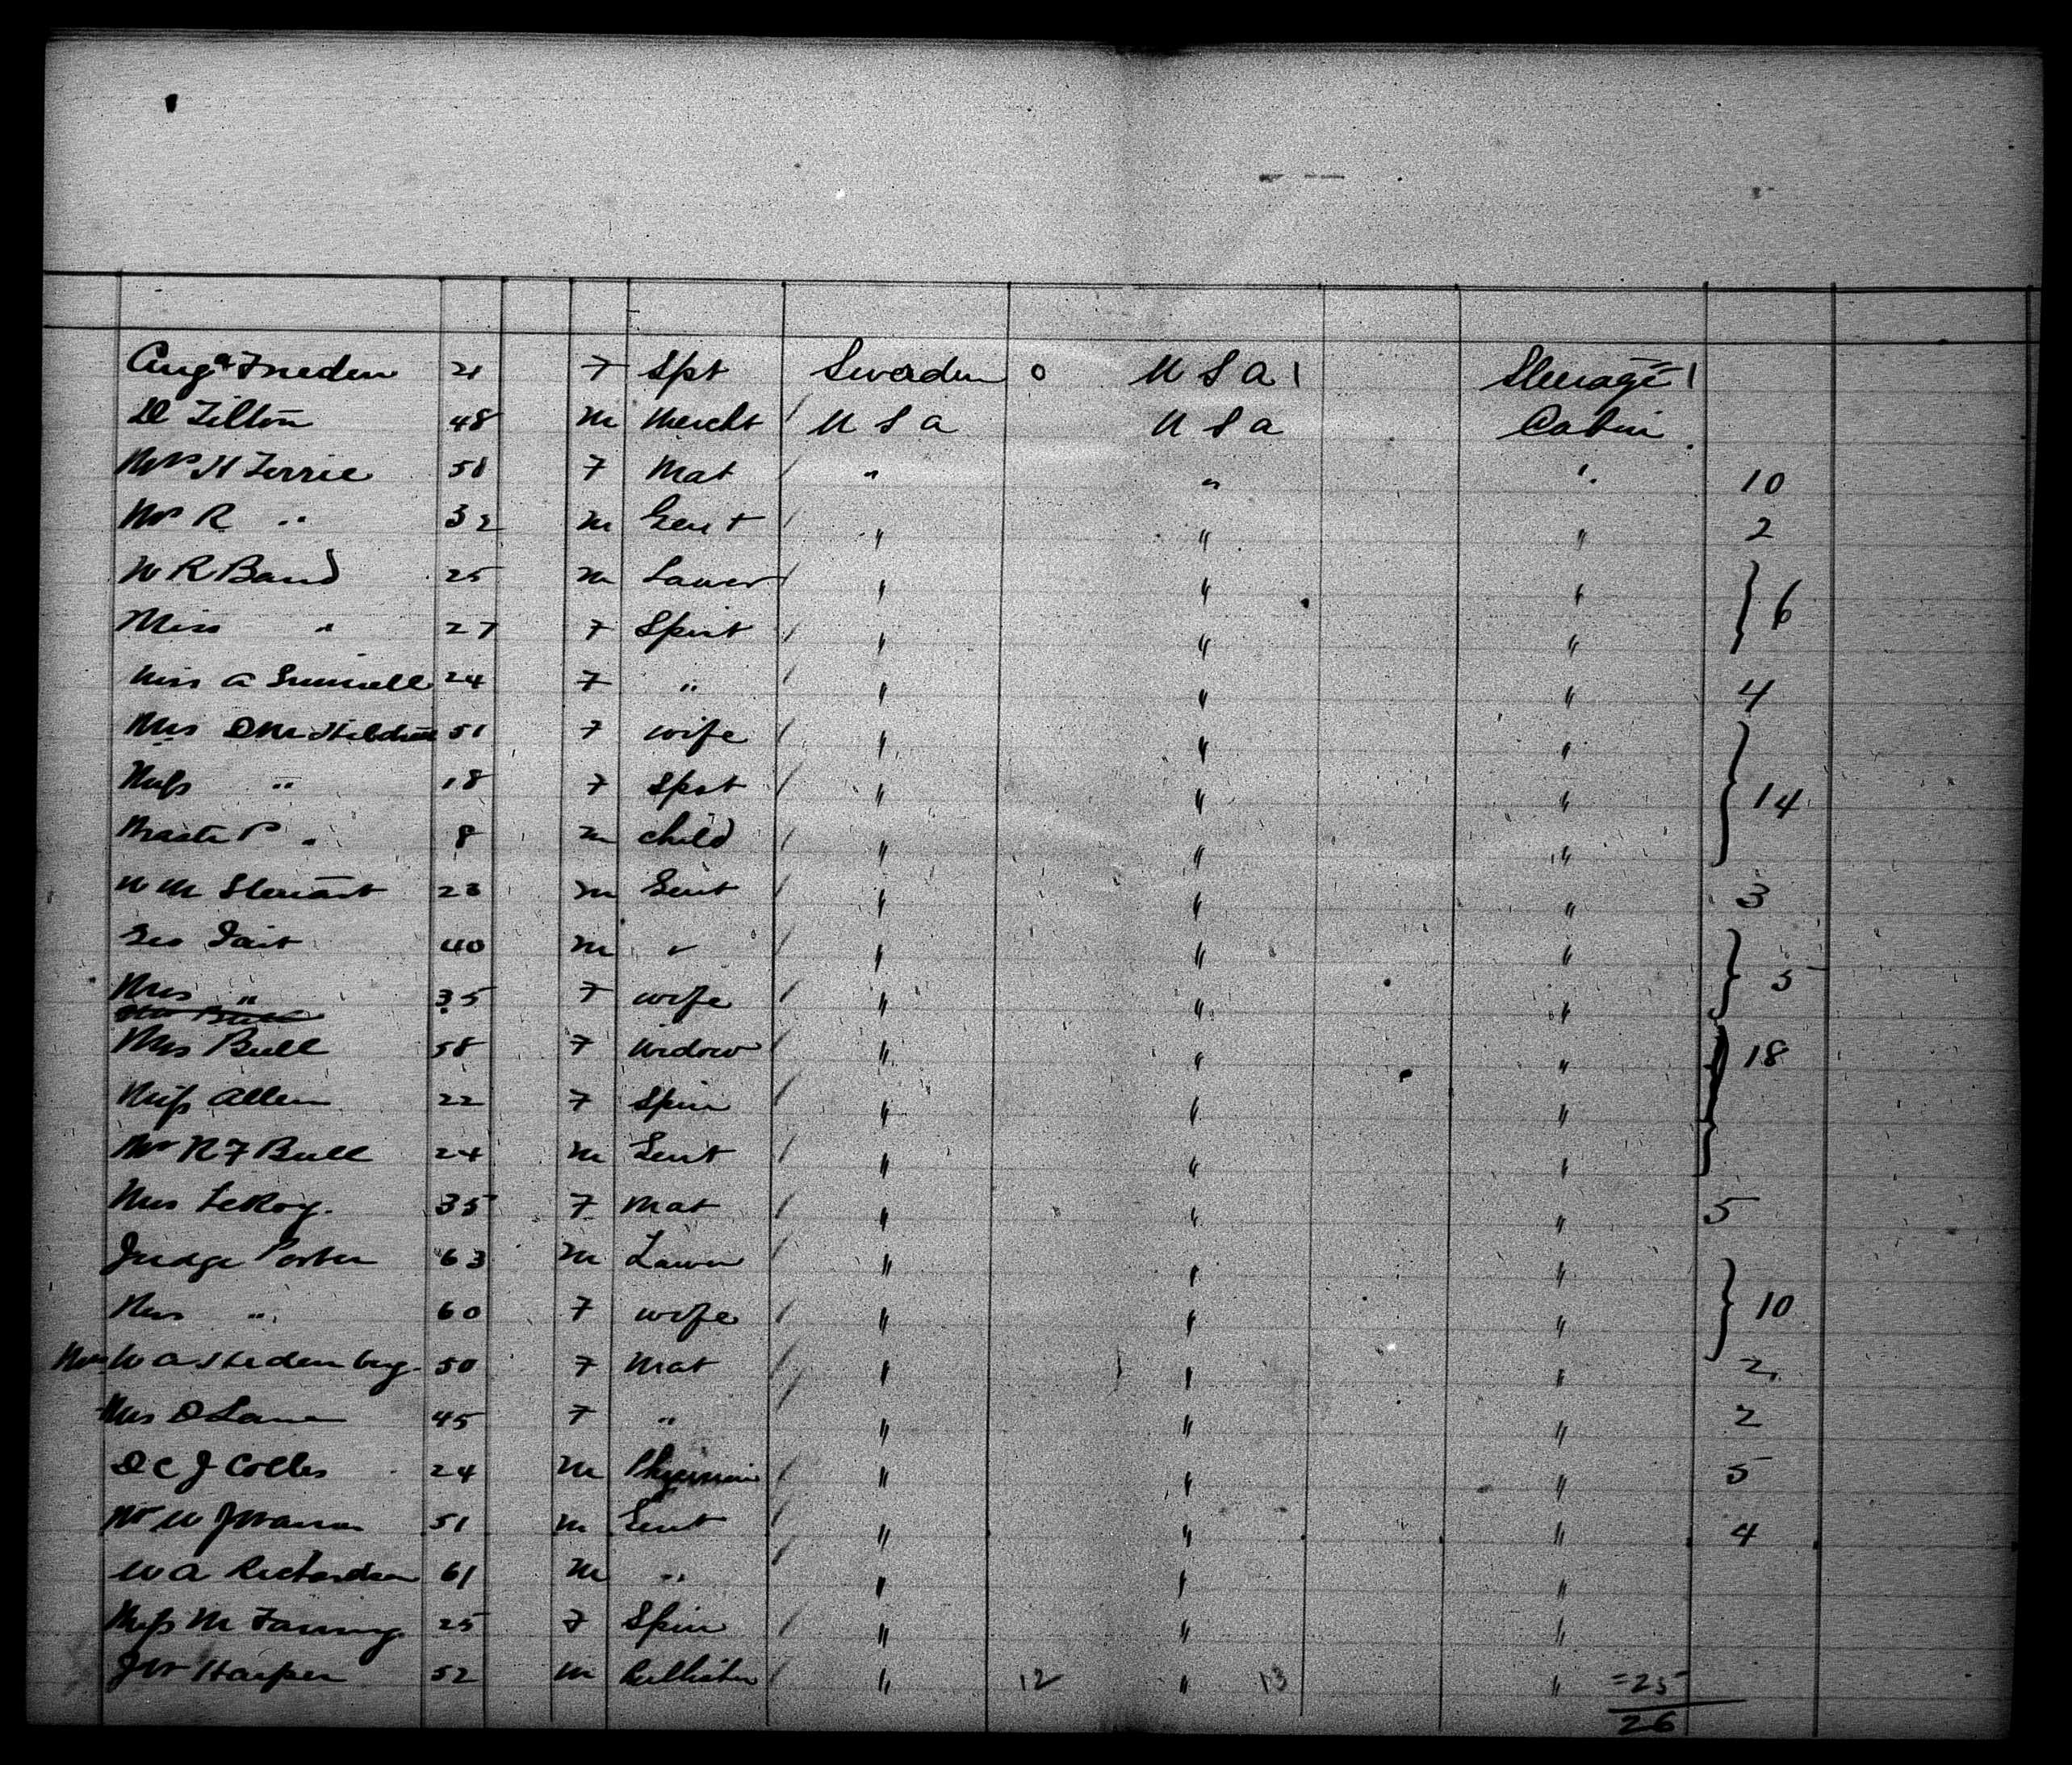 Aug^a Frieden 21 F Spt Sweden 0 U S A 1 Steerage 1
D Tilton 48 M Mercht / U S A U S A Cabin
Mrs H Terrie 51 F Mat / " " " 10
Mr R " 32 M Gent / " " " 2
W R Band 25 M Lawer / " " " } 6
Miss " 27 F Spint / " " "
Miss A 24 F " / " " " 4
Mrs D M 51 F wife / " " " } 14
Miss " 18 F Spst / " " "
Master P " 8 M child / " " "
W M Stewart 23 M Gent / " " " 3
Geo Tait 40 M " / " " " } 5
Mrs " 35 F wife / " " "
Mrs Bull 58 F Widow / " " " } 18
Miss Allen 22 F Spin / " " "
Mr R F Bull 24 M Gent / " " "
Mrs LeRoy. 35 F Mat / " " " 5
Judge Porter 63 M Lawer / " " " } 10
Mrs " 60 F wife / " " "
Mrs W A 50 F Mat / " " " 2
Mrs D Lane 45 F " / " " " 2
D C J Colles 24 M Physician / " " " 5
Mr W J Warren 51 M Gent / " " " 4
W A Richardson 61 M " / " " "
Miss M Fanning 25 F Spin / " " "
J W Harper 52 M / " 12 " 13 " =25
26